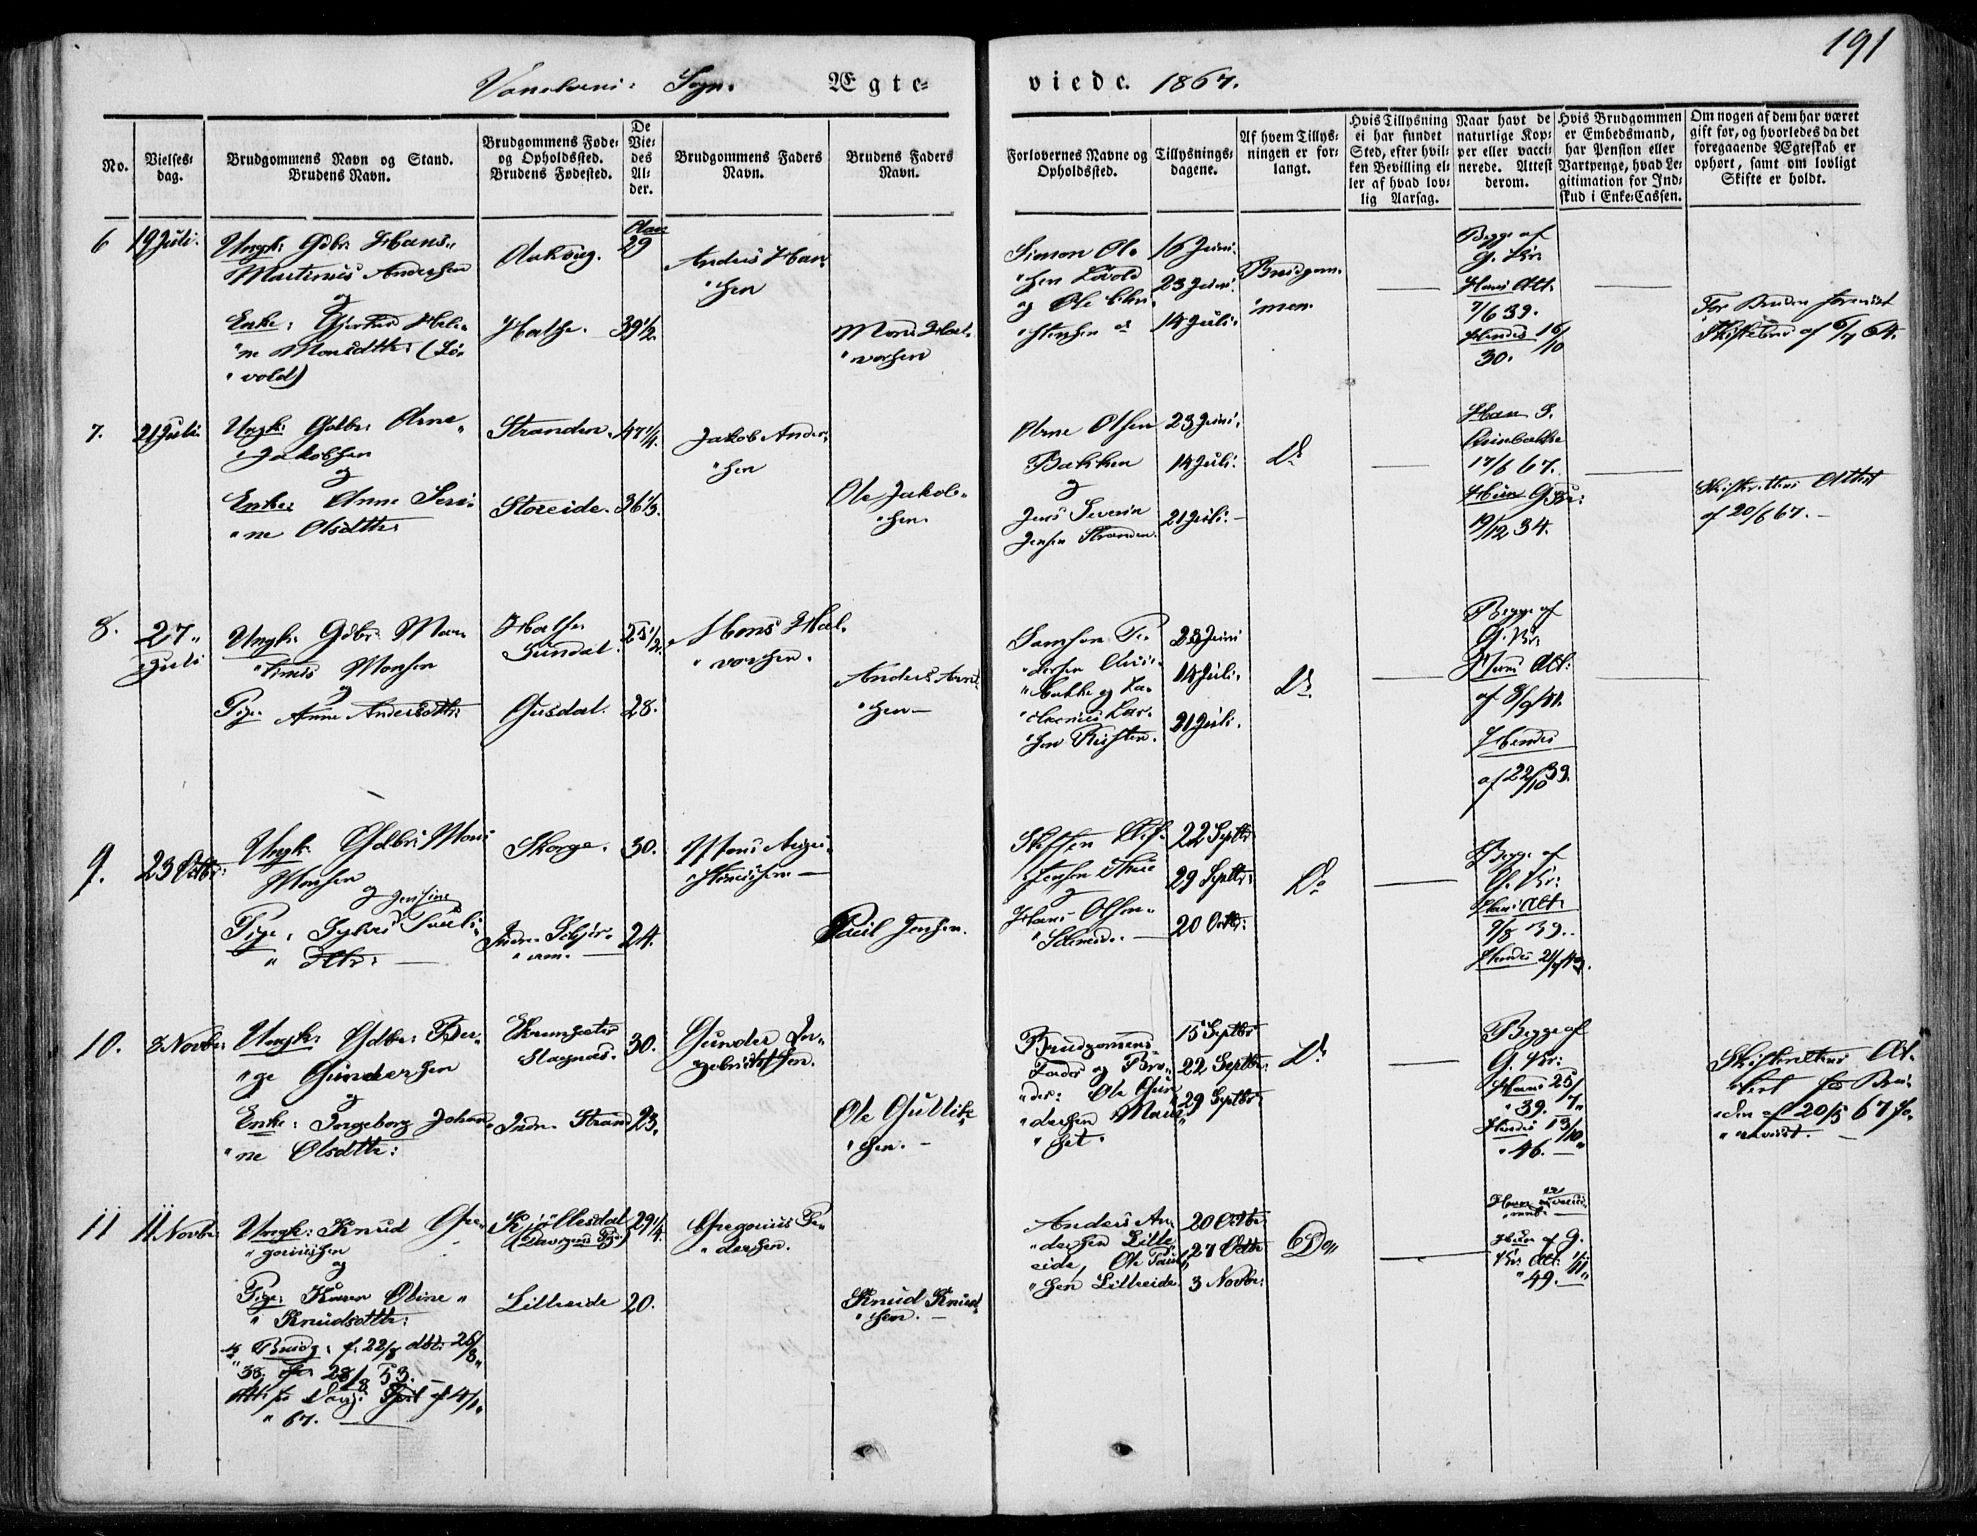 191
Vanelvens Sogn. Ægte-
viede. 1867.
No.
Vielses-
dag.
Brudgommens Navn og Stand.
Brudens Navn.
Brudgommens Føde-
og Opholdssted.
Brudens Fødested.
De
Vie-
des
Al-
der.
Brudgommens Faders
Navn.
Brudens Faders
Navn.
Forlovernes Navne og
Opholdssted.
Tillysnings-
dagene.
Af hvem Tillys-
ningen er for-
langt.
Hvis Tillysning
ei har fundet
Sted, efter hvil-
ken Bevilling el-
ler af hvad lov-
lig Aarsag.
Naar havt de
naturlige Kop-
per eller vacci-
nerede. Attest
derom.
Hvis Brudgommen
er Embedsmand,
har Pension eller
Vartpenge, hvad Le-
gitimation for Ind-
skud i Enke-Cassen.
Om nogen af dem har været
gift før, og hvorledes da det
foregaaende Ægteskab er
ophørt, samt om lovligt
Skifte er holdt.
6
19 Juli.
Ungk: Gdbr: Hans
Martinus Andersen
og
Enke: Gjertrud Heli-
"ne Monsdtr: (Lø-
"vold)
Hatle.
Aar
29
39 1/2.
Anders Han-
"sen
Mons Hal-
"vorsen
Simon Ol-
"sen Løvold
og Ole Chri-
"stensen
16 Juni.
23 Juni.
14 Juli.
Brudgom-
"men.
Begge af
G. Kr:
Hans Att:
7/6 39.
Hendes 16/10
30.
For Bruden forevist
Skiftebrev af 6/7 64.
7.
21 Juli
Ungk: Gdbr: Arne
"Jakobsen
og
Enke: Anne Seri-
"ne Olsdtr:
Stranden.
Storeide.
47 1/4.
36 1/3.
Jakob Ander-
"sen
Ole Jakob-
"sen.
Arne Olsen
Bakken
og
Jens Severin
Jensen Stranden.
23 Juni.
14 Juli.
21 Juli.
Do
Han S.
17/6 67.
Hun G. Kr:
19/12 34.
Skifterettens Attest
af 20/6 67.
8.
27
Juli
Ungk: Gdbr: Mar-
"tinus Monsen
og
Pige. Anne Andersdtr:
Hatle
Sundal.
Gusdal.
25 1/2.
28.
Mons Hal-
"vorsen.
Anders Arne-
"sen
23 Juni
14 Juli.
21 Juli.
Do
Begge af
G. Kr:
Hans Att:
af 8/9 41.
Hendes
af 22/10 39.
9.
23 Octbr:
Ungk: Gdbr: Mons
Monsen
og Jensine
Pige. Sylvi Pauli-
" Dtr:
Skorge.
Indre Schjer-
"ven.
30.
24.
Mons Augu-
"stinussen
Paul Jensen.
22 Septbr:
29 Septbr:
20 Octbr:
Hans Olsen
Do
Begge af
G. Kr:
Hans Att:
9/8 39.
10.
8 Novbr:
Ungk: Gdbr: Bør-
"ge Gundersen
og
Enke: Ingeborg Johan-
"ne Olsdtr:
Indre Strand
30.
23.
Gunder In-
gebrigtsen.
Ole Gullik-
"sen.
Brudgommens
Fader og Bro-
"der: Ole Gun-
"dersen Maur-
"set.
15 Septbr
22 Septbr:
29 Septbr:
Do
Begge af
G. Kr:
Hans 25/7
39.
Hendes 13/10
46.
Skifterettens At-
"test for Bru-
"den af 20/5 67 fo-
"revist.
11
11 Novbr:
Ungk: Knud Gre-
"goriussen
og
Pige: Karen Oline
" Knudsdtr:
Kjøllesdal
Lilleeide
29 1/4.
20.
Gregorius Pe-
"dersen.
Knud Knud-
"sen.
Anders An-
"dersen Lille-
eide, Ole Paul-
"sen Lilleeide.
20 Octbr:
27 Octbr:
3 Novbr:
Do
Hun af G.
Kr: Att: 1/11
49.
Brudg: f: 22/8 dbt: 26/8
"38.
"67.